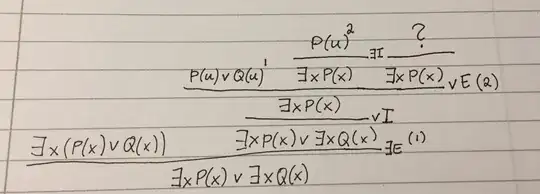 P(u)² ?
∃I
P(u) ∨ Q(u)¹ ∃xP(x) ∃xP(x) ∨E (2)
∃xP(x) ∨I
∃x(P(x) ∨ Q(x)) ∃xP(x) ∨ ∃xQ(x) ∃E (1)
∃xP(x) ∨ ∃xQ(x)